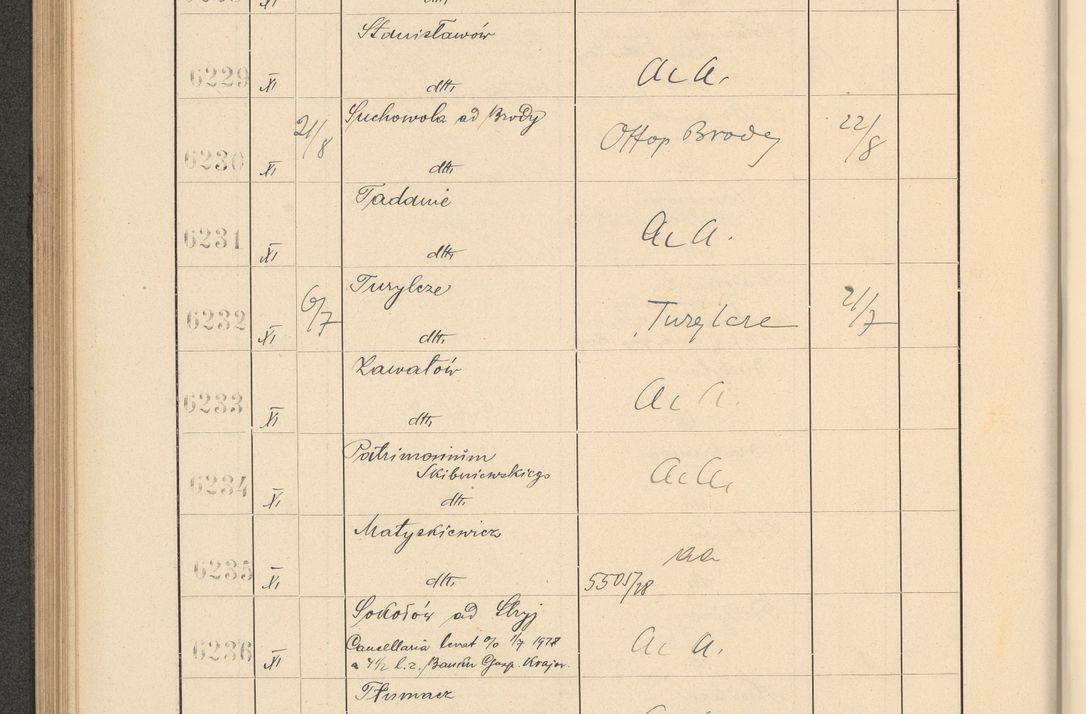 Stanisławów
6229 XI dtto Ac A.
21/8 Suchowola ad Brody
6230 XI dtto Ottop Brody 22/8
Tadanie
6231 XI dtto Ac A.
6/7 Turylcze
6232 XI dtto Turylcze 21/7
Zawałów
6233 XI dtto Ac A.
Patrimonium
Skibniewskiego
6234 XI dtto Ac A.
Matyskiewicz
6235 XI dtto aa
5505/28
Sokołów ad Stryj
Cancellaria
6236 XI Ac A.
Tłumacz